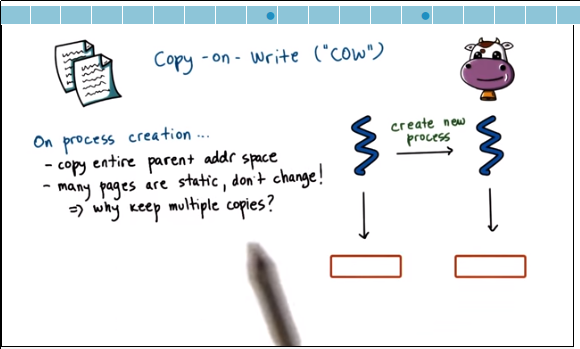 Copy-on-Write ("COW")
On process creation...
- copy entire parent addr space
- many pages are static, don't change!
=> why keep multiple copies?
create new
process